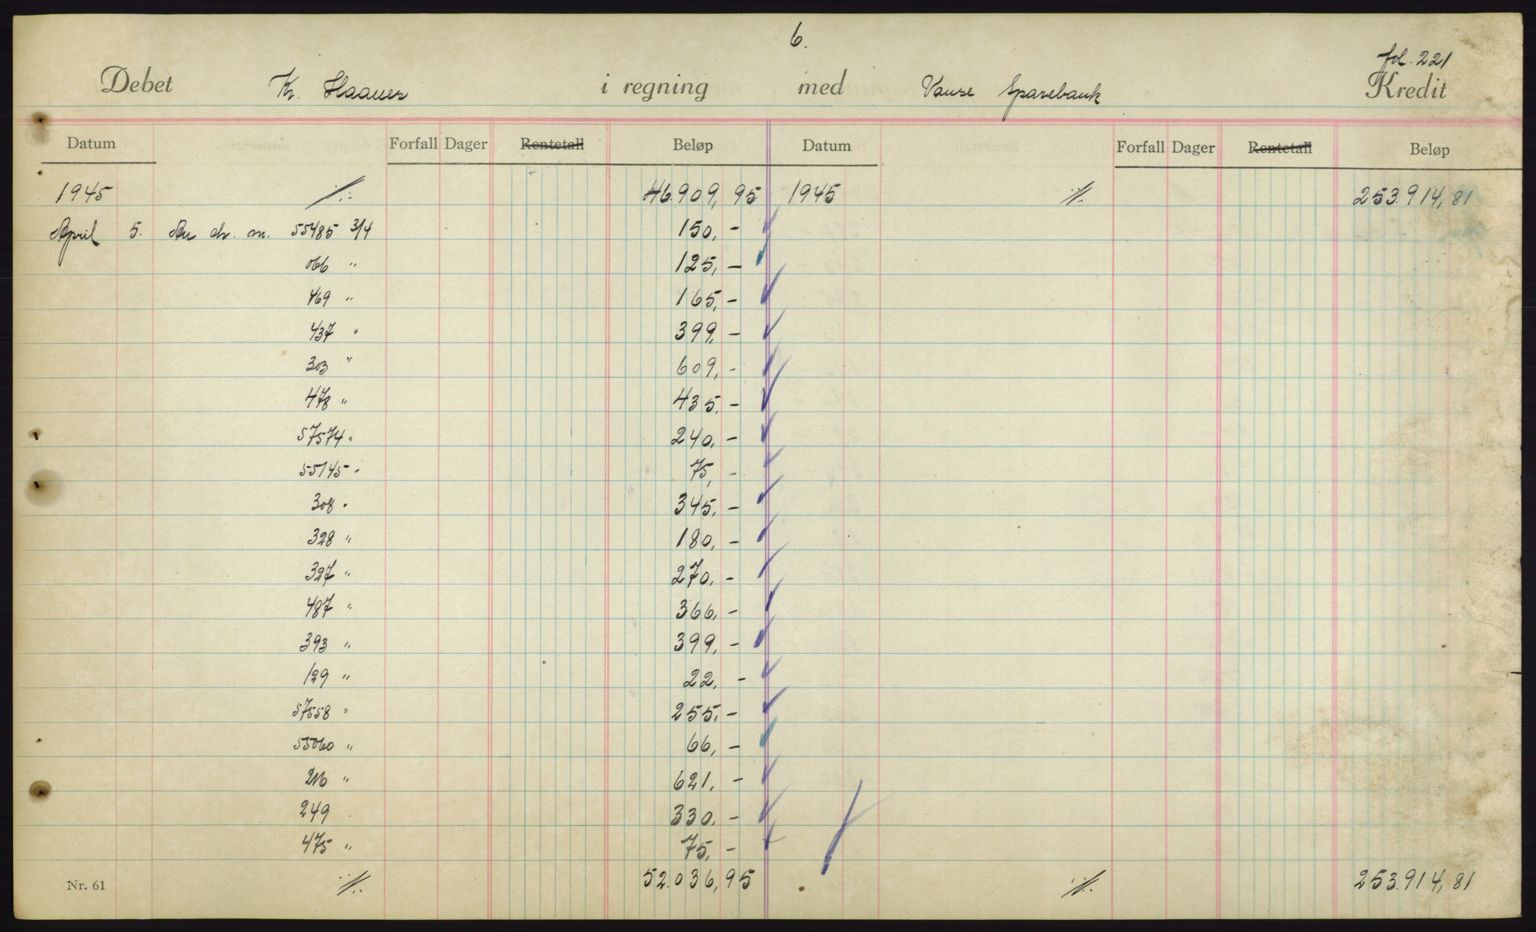 6.
fol. 221
Debet Kr. Haaues i regning med Vanse Sparebank Kredit
Datum Forfall Dager Rentetall Beløp Datum Forfall Dager Rentetall Beløp
1945 ·/. 46.909,95 1945 ·/. 253.914,81
April 5. An chr. m. 55485 3/4 150,-
066 " 125,-
469 " 165,-
437 " 399,-
303 " 609,-
478 " 435,-
57574 " 240,-
55145 " 75,-
308 " 345,-
328 " 180,-
327 " 270,-
487 " 366,-
393 " 399,-
129 " 22,-
57558 " 255,-
55060 " 66,-
216 " 621,-
249 330,-
475 " 75,-
Nr. 61 ·/. 52.036,95 ·/. 253.914,81